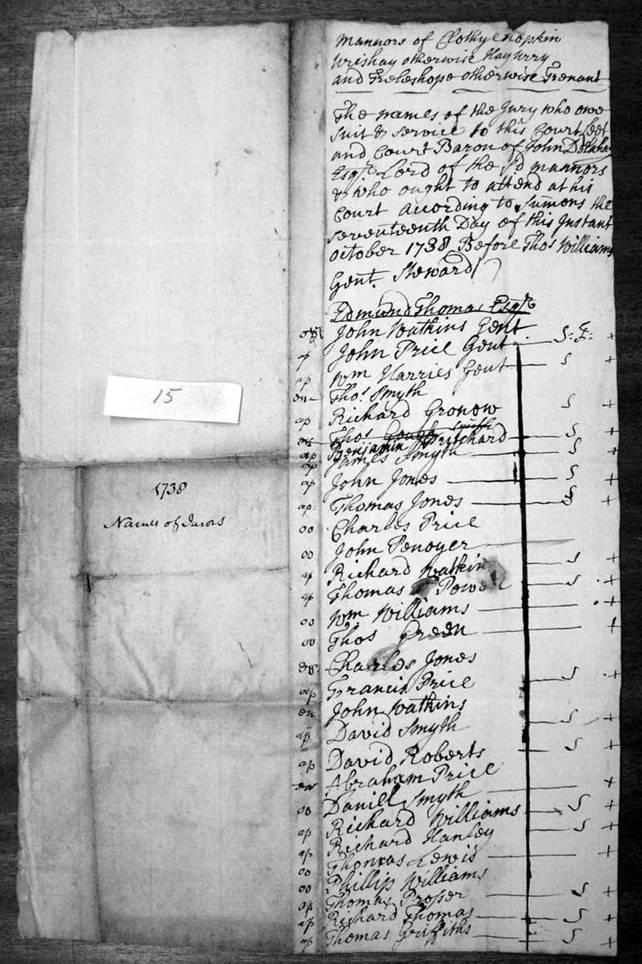 15
1738
Names of Jurors
Mannors of Clothyenopkin
Urishay otherwise Haywrry
and Trebeshope otherwise Trenant
The names of the Jury who owe
suit & service to this Court Leet
and Court Baron of John Delaha
Esqr. Lord of the sd mannors
& who ought to attend at his
Court according to sumons the
seventeenth Day of this Instant
october 1738 Before Thos Williams
Gent. Steward
Edmund Thomas Esqr
John Watkins Gent
ap John Price Gent S. F. +
ap Wm Harries Gent S +
Thos Smyth
ap Richard Gronow S +
Thos Gough
Benjamin Pritchard S +
ap James Smyth S +
ap John Jones S +
ap Thomas Jones S +
oo Charles Price
oo John Penoyer
ap Richard Watkin S +
ap Thomas Powel S +
oo Wm Williams +
oo Thos Green +
Charles Jones
ap Francis Price S +
John Watkins
ap David Smyth S +
ap David Roberts S +
Abraham Price
oo Daniel Smyth +
ap Richard Williams S +
ap Richard Hanley S +
oo Thomas Lewis +
oo Phillip Williams
ap Thomas Prosser S +
ap Richard Thomas S +
ap Thomas Griffiths S +